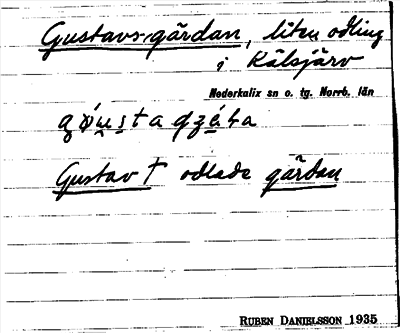 Gustavs-gärdan, liten odling
i Rälsjärv
Nederkalix sn o. tg. Norrb. län
Gustav † odlade gärdan
RUBEN DANIELSSON 1935